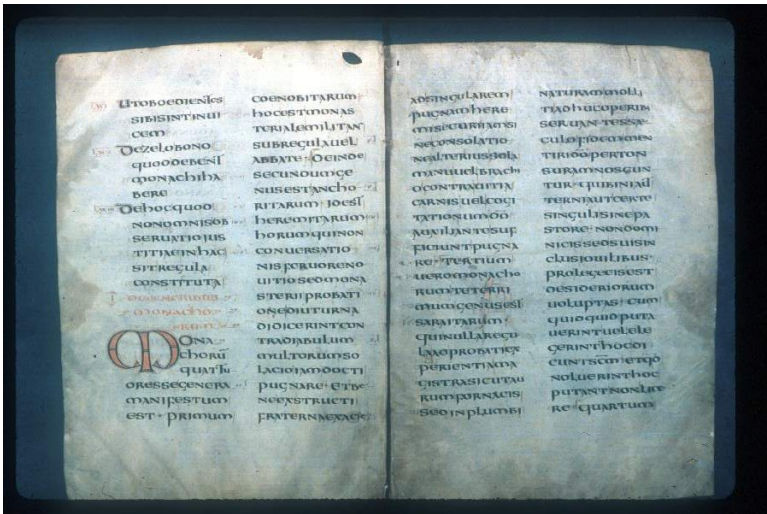 UTOBOEDIENTES
SIBISINTINUI
CEM
DEZELOBONO
QUODDEBENT
MONACHIHA
BERE
DEHOCQUOD
NONOMNISOB
SERUATIOIUS
TITIAEINHAC
SITREGULA
CONSTITUTA
DEGENERIBUS
MONACHO
RUM
MONA
CHORŪ
QUATTU
ORESSEGENERA
MANIFESTUM
EST · PRIMUM
COENOBITARUM
HOCESTMONAS
TERIALEMILITAN
SUBREGULAUEL
ABBATE · DEINDE
SECUNDUMGE
NUSESTANCHO
RITARUM IDEST
HEREMITARUM
HORUMQUINON
CONUERSATIO
NISFERUORENO
UITIOSEDMONA
STERIIPROBATI
ONEDIUTURNA
DIDICERINTCUN
TRADIABULUM
MULTORUMSO
LACIOIAMDOCTI
PUGNARE · ETBE
NEEXSTRUCTI
FRATERNAEXACIE
ADSINGULAREM
PUGNAMHERE
MISECURIIAMSI
NECONSOLATIO
NEALTERIUSSOLA
MANUUELBRACHI
OCONTRAUITIA
CARNISUELCOGI
TATIONUMDŌ
AUXILIANTESUF
FICIUNTPUGNA
RE · TERTIUM
UEROMONACHO
RUMTETERRI
MUMGENUSEST
SARAITARUM
QUINULLAREGU
LAADPROBATIEX
PERIENTIAMA
GISTRASICUTAU
RUMFORNACIS
SEDINPLUMBI
NATURAMMOLLI
TIADHUCOPERIB
SERUANTESSAE
CULOFIDEMMEN
TIRIDŌPERTON
SURAMNOSCUN
TUR · QUIBINIAUT
TERNIAUTCERTE
SINGULISINEPA
STORE · NONDOMI
NICISSEDSUISIN
CLUSIOUILIBUS ·
PROLEGEEISEST
DESIDERIORUM
UOLUPTAS · CUM
QUIDQUIDPUTA
UERINTUELELE
GERINTHOCDI
CUNTSCM̄ · ETQÐ
NOLUERINTHOC
PUTANTNONLICE
RE · QUARTUM